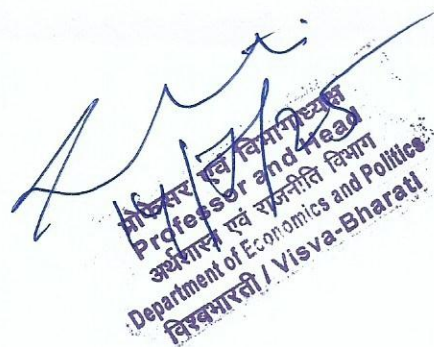 14/7/25
प्रोफेसर एवं विभागाध्यक्ष
Professor and Head
अर्थशास्त्र एवं राजनीति विभाग
Department of Economics and Politics
विश्वभारती / Visva-Bharati